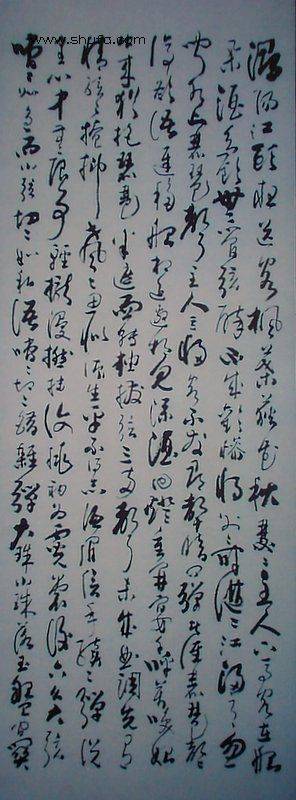 www.shufa.com
潯陽江頭夜送客楓葉荻花秋瑟々主人下馬客在船
舉酒欲飲無管弦醉不成歡慘將別別時茫々江浸月忽
聞水上琵琶聲主人忘歸客不發尋聲暗問彈者誰琵琶聲
停欲語遲移船相近邀相見添酒回燈重開宴千呼萬喚始
出來猶抱琵琶半遮面轉軸撥弦三兩聲未成曲調先有
情弦々掩抑聲々思似訴生平不得志低眉信手續々彈說
盡心中無限事輕攏慢撚抹復挑初為霓裳後六幺大弦
嘈々如急雨小弦切々如私語嘈々切々錯雜彈大珠小珠落玉盤間